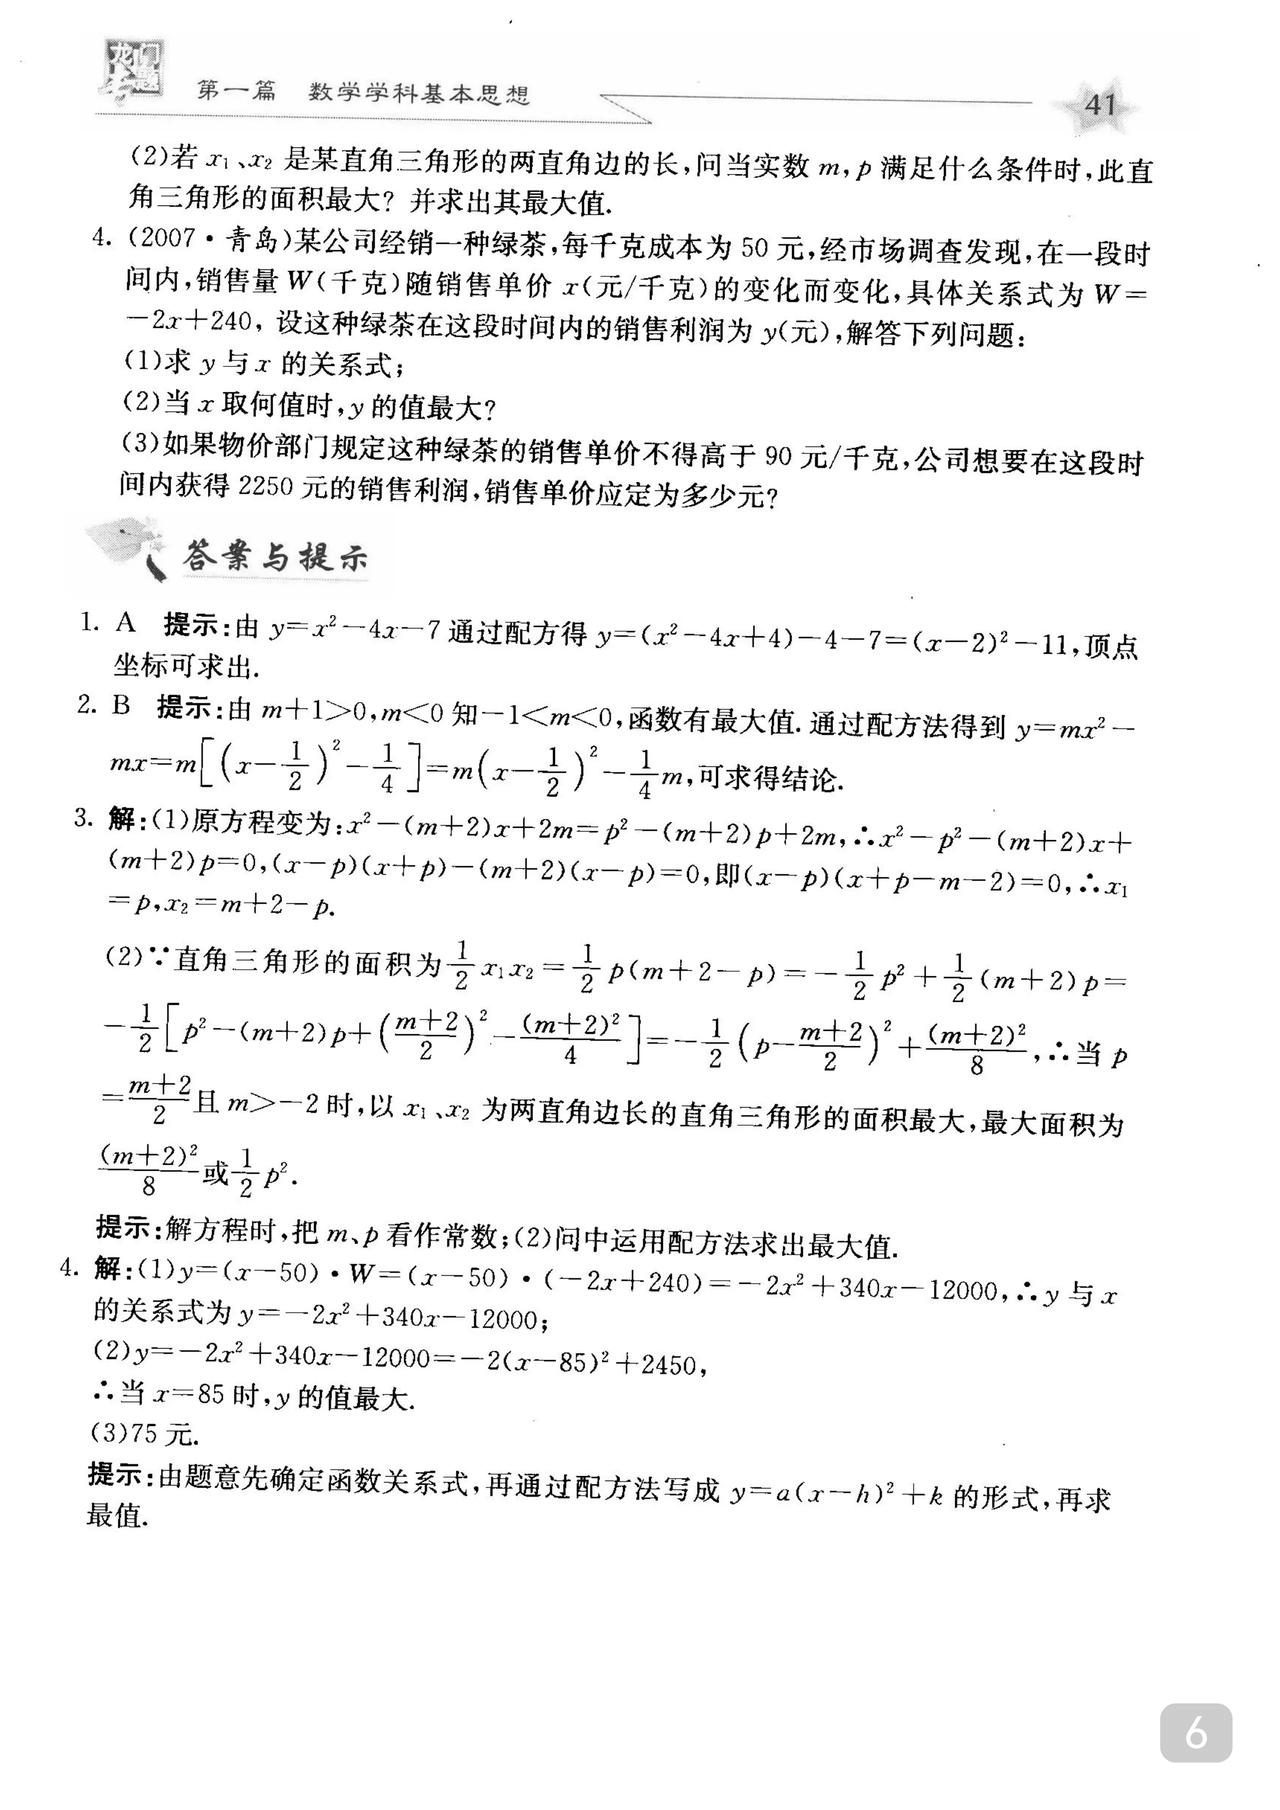 龙门专题
第一篇 数学学科基本思想
41
(2)若 x₁、x₂ 是某直角三角形的两直角边的长,问当实数 m,p 满足什么条件时,此直
角三角形的面积最大? 并求出其最大值.
4. (2007·青岛)某公司经销一种绿茶,每千克成本为 50 元,经市场调查发现,在一段时
间内,销售量 W(千克)随销售单价 x(元/千克)的变化而变化,具体关系式为 W=
-2x+240, 设这种绿茶在这段时间内的销售利润为 y(元),解答下列问题:
(1)求 y 与 x 的关系式;
(2)当 x 取何值时,y 的值最大?
(3)如果物价部门规定这种绿茶的销售单价不得高于 90 元/千克,公司想要在这段时
间内获得 2250 元的销售利润,销售单价应定为多少元?
答案与提示
1. A 提示:由 y=x²-4x-7 通过配方得 y=(x²-4x+4)-4-7=(x-2)²-11,顶点
坐标可求出.
2. B 提示:由 m+1>0,m<0 知-1<m<0,函数有最大值. 通过配方法得到 y=mx²-
mx=m[(x-1/2)²-1/4]=m(x-1/2)²-1/4m,可求得结论.
3. 解:(1)原方程变为:x²-(m+2)x+2m=p²-(m+2)p+2m,∴x²-p²-(m+2)x+
(m+2)p=0,(x-p)(x+p)-(m+2)(x-p)=0,即(x-p)(x+p-m-2)=0,∴x₁
=p,x₂=m+2-p.
(2)∵直角三角形的面积为1/2x₁x₂=1/2p(m+2-p)=-1/2p²+1/2(m+2)p=
-1/2[p²-(m+2)p+((m+2)/2)²-(m+2)²/4]=-1/2(p-(m+2)/2)²+(m+2)²/8,∴当 p
=(m+2)/2且 m>-2 时,以 x₁、x₂ 为两直角边长的直角三角形的面积最大,最大面积为
(m+2)²/8或1/2p².
提示:解方程时,把 m、p 看作常数;(2)问中运用配方法求出最大值.
4. 解:(1)y=(x-50)·W=(x-50)·(-2x+240)=-2x²+340x-12000,∴y 与 x
的关系式为 y=-2x²+340x-12000;
(2)y=-2x²+340x-12000=-2(x-85)²+2450,
∴当 x=85 时,y 的值最大.
(3)75 元.
提示:由题意先确定函数关系式,再通过配方法写成 y=a(x-h)²+k 的形式,再求
最值.
6